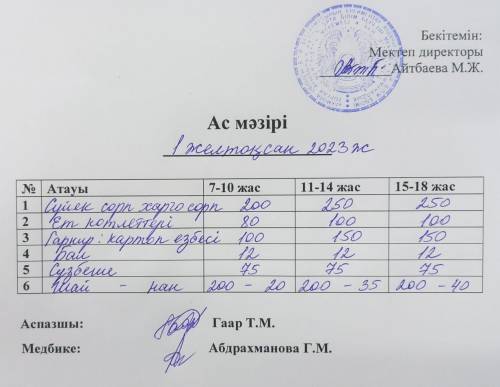 Бекітемін:
Мектеп директоры
Айтбаева М.Ж.
Ас мәзірі
1 желтоқсан 2023ж
№ Атауы 7-10 жас 11-14 жас 15-18 жас
1 Сүйек сорп харчо сорп 200 250 250
2 Ет котлеттері 80 100 100
3 Гарнир: картоп езбесі 100 150 150
4 Бал 12 12 12
5 Сузбеше 75 75 75
6 Шай - нан 200 - 20 200 - 35 200 - 40
Аспазшы: Гаар Т.М.
Медбике: Абдрахманова Г.М.